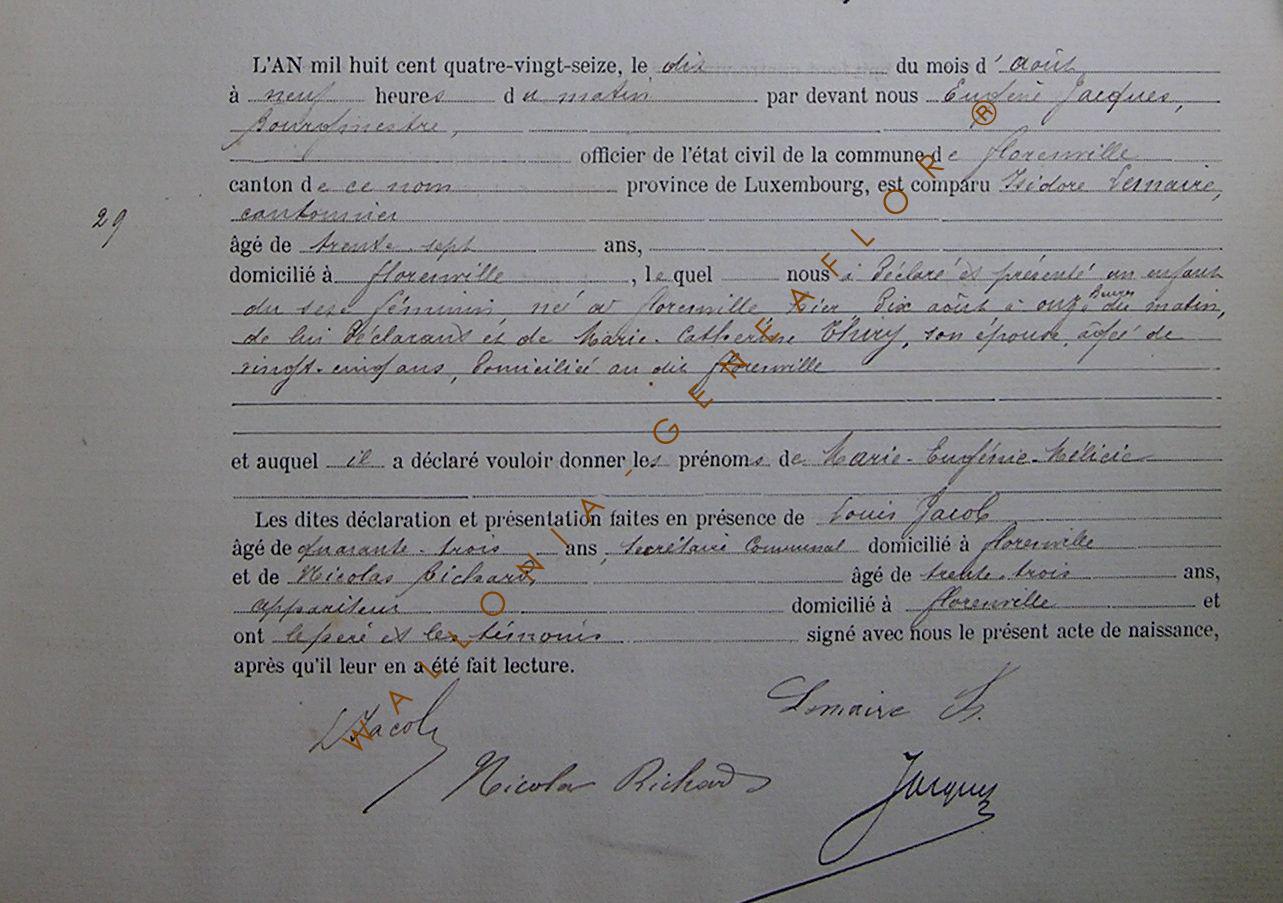 L'AN mil huit cent quatre-vingt-seize, le dix du mois d'août
à neuf heures du matin par devant nous Eugène Jacques,
Bourgmestre,
officier de l'état civil de la commune de Florenville
canton de ce nom province de Luxembourg, est comparu Isidore Lemaire,
29
cantonnier
âgé de trente-sept ans,
domicilié à Florenville, lequel nous a déclaré et présenté un enfant
du sexe féminin né à Florenville, hier, dix août à onze heures du matin,
de lui déclarant et de Marie-Catherine Thiry, son épouse, âgée de
vingt-cinq ans, domiciliée au dit Florenville
et auquel il a déclaré vouloir donner les prénoms de Marie-Eugénie-Mélicie
Les dites déclaration et présentation faites en présence de Louis Jacob
âgé de quarante-trois ans secrétaire communal domicilié à Florenville
et de Nicolas Richard, âgé de trente-trois ans,
appariteur domicilié à Florenville et
ont le père et les témoins signé avec nous le présent acte de naissance,
après qu'il leur en a été fait lecture.
Lemaire
L Jacob
Nicolas Richard
Jacques
WALLONIA - GENEAFLOR ®